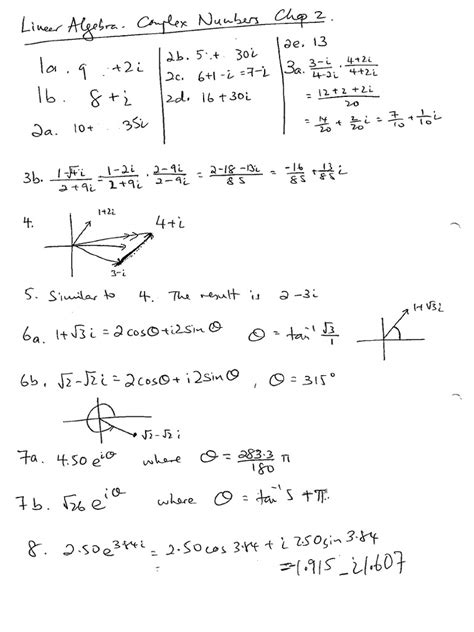 Linear Algebra. Complex Numbers Chap 2.
1a. 9 +2i
1b. 8+i
2a. 10+ 35i
2b. 5 + 30i
2c. 6+1-i=7-i
2d. 16+30i
2e. 13
3a. (3-i)/(4-2i) · (4+2i)/(4+2i)
= (12+2+2i)/20
= 14/20 + 2/20 i = 7/10 + 1/10 i
3b. (1-√4i)/(2+9i) = (1-2i)/(2+9i) · (2-9i)/(2-9i) = (2-18-13i)/85 = -16/85 + 13/85 i
4.
1+2i
4+i
3-i
5. Similar to 4. The result is 2-3i
6a. 1+√3i = 2cosθ+i2sinθ θ = tan⁻¹ √3/1
1+√3i
6b. √2-√2i = 2cosθ+i2sinθ, θ = 315°
√2-√2i
7a. 4.50e^iθ where θ = 283.3/180 π
7b. √26 e^iθ where θ = tan⁻¹5 + π.
8. 2.50e^3.84i = 2.50cos 3.84 + i 2.50sin 3.84
= 1.915 - i1.607